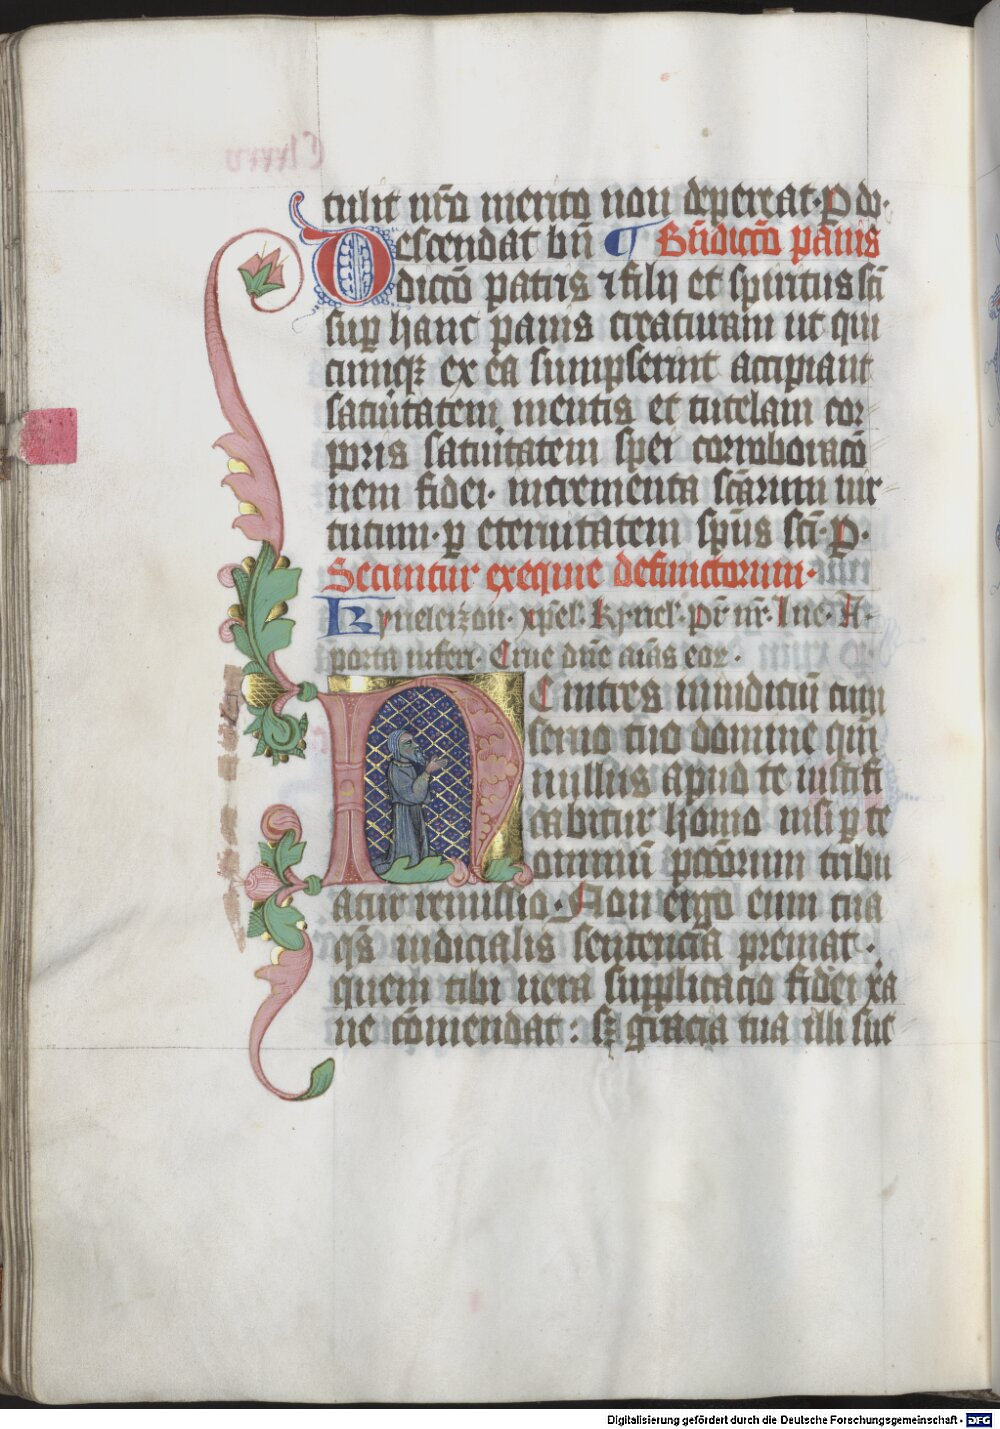 tulit nr̄o merito non depereat · P do·
Descendat bn̄ ¶ Bn̄dictō panis
dictō patris ⁊ filij et spiritus scī
sup hanc panis creaturam ut qui
cumqꝫ ex ea sumpserint accipiant
sanitatem mentis et tutelam cor
poris sanitatem spei corroboracō
nem fidei · incrementa scārum uir
tutum · p eternitatem spūs scī · P ·
Secuntur exequie defunctorum ·
Kyrieleizon · xp̄el · kyriel · pr̄ nr̄ · A ·
porta inferi · Erue dn̄e aīas eor ·
Non intres in iudiciū cum
seruo tuo domine qm̄
nullus apud te iustifi
cabitur homo nisi p te
omniū pctōrum tribu
atur remissio · Non ergo eum tua
qs̄ iudicialis sentencia premat ·
quem tibi uera supplicacio fidei xp̄ia
ne cōmendat : sꝫ gracia tua illi suc
Digitalisierung gefördert durch die Deutsche Forschungsgemeinschaft - DFG